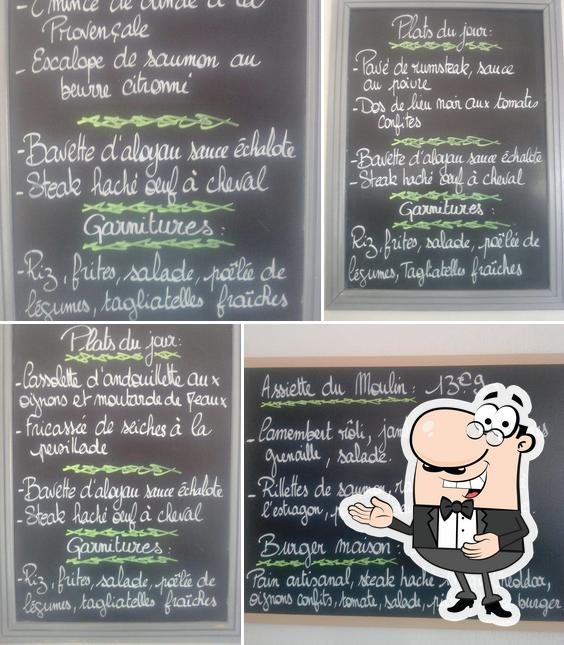 - Émincé de dinde à la
Provençale
- Escalope de saumon au
beurre citronné
- Bavette d'aloyau sauce échalote
- Steak haché œuf à cheval
Garnitures :
- Riz, frites, salade, poêlée de
légumes, tagliatelles fraîches
Plats du jour :
- Pavé de rumsteak, sauce
au poivre
- Dos de lieu noir aux tomates
confites
- Bavette d'aloyau sauce échalote
- Steak haché œuf à cheval
Garnitures :
Riz, frites, salade, poêlée de
légumes, Tagliatelles fraîches
Plats du jour :
- Cassolette d'andouillette aux
oignons et moutarde de Meaux
- Fricassée de seiches à la
persillade
- Bavette d'aloyau sauce échalote
- Steak haché œuf à cheval
Garnitures :
- Riz, frites, salade, poêlée de
légumes, tagliatelles fraîches
Assiette du Moulin : 13€9
- Camembert rôti, jam
grenaille, salade.
- Rillettes de saumon, r
l'estragon, p
Burger maison :
Pain artisanal, steak haché heddar,
oignons confits, tomate, salade, burger